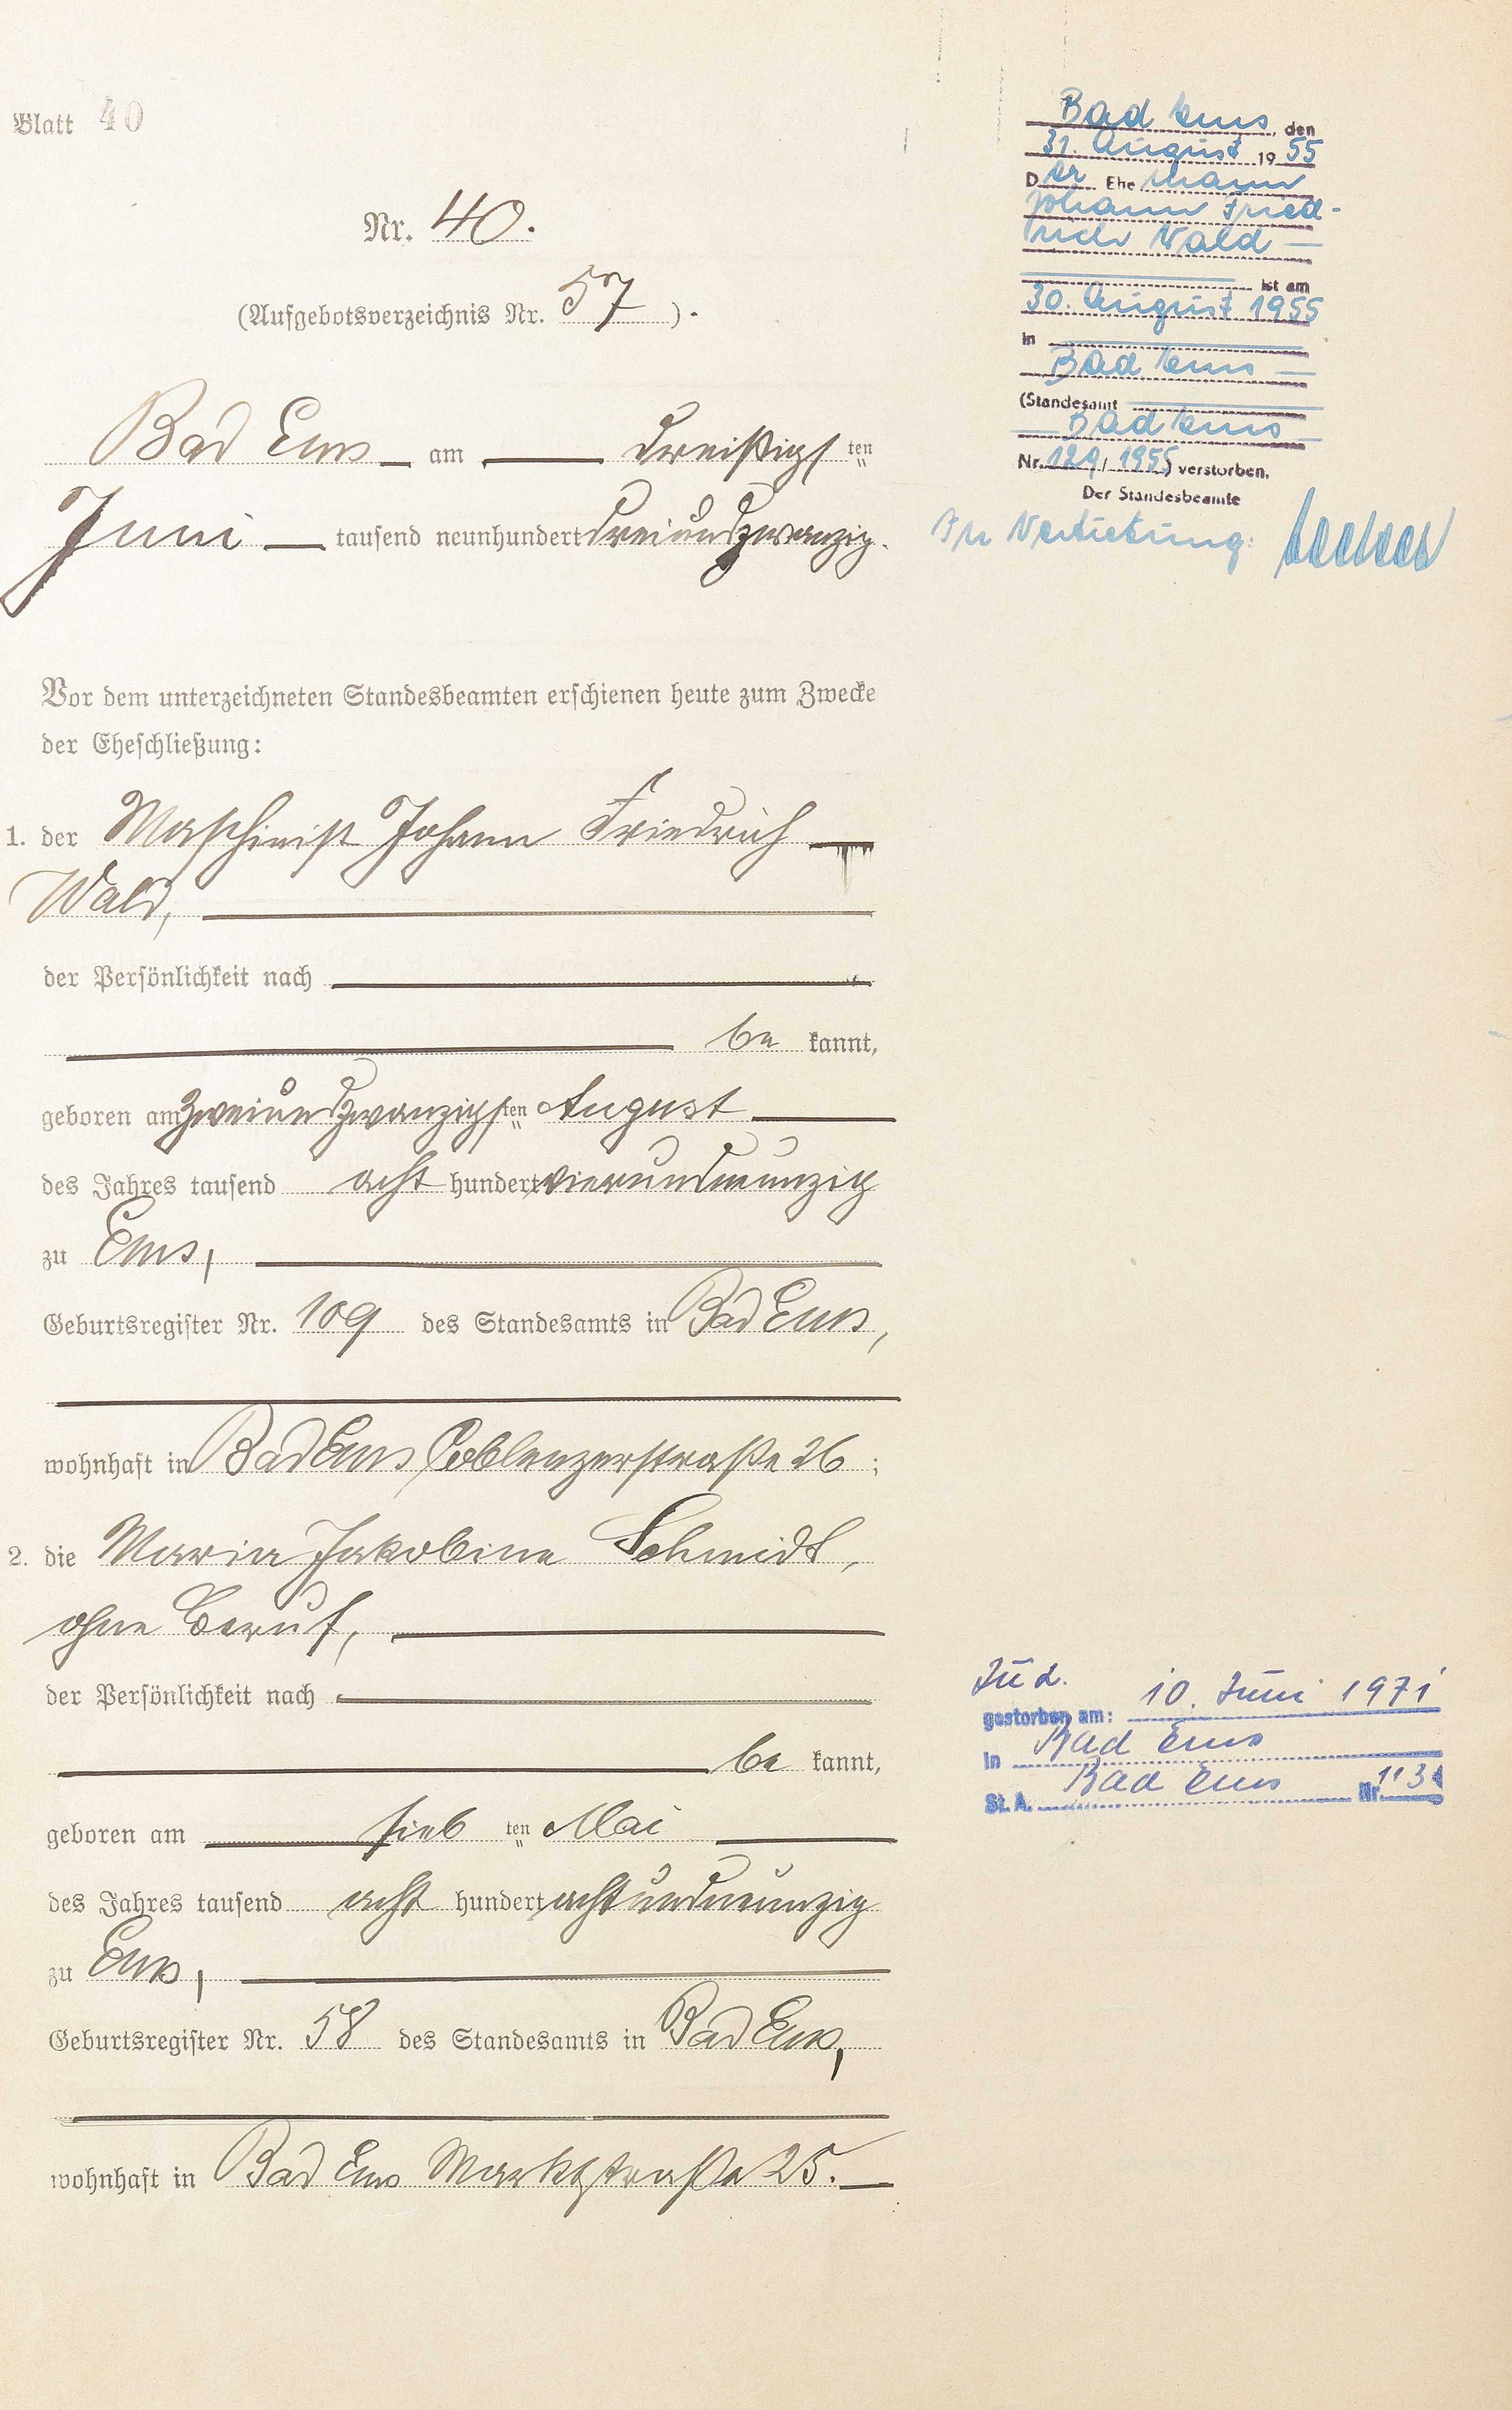 Blatt 40
Nr. 40.
(Aufgebotsverzeichnis Nr. 57).
Bad Ems am dreißigsten
Juni tausend neunhundert dreiundzwanzig.
Vor dem unterzeichneten Standesbeamten erschienen heute zum Zwecke
der Eheschließung:
1. der Maschinist Johann Friedrich
Wald,
der Persönlichkeit nach
be kannt,
geboren am zweiundzwanzigsten August
des Jahres tausend acht hundert vierundneunzig
zu Ems,
Geburtsregister Nr. 109 des Standesamts in Bad Ems,
wohnhaft in Bad Ems Coblenzerstraße 26;
2. die Maria Jakobine Schmidt,
ohne Beruf,
der Persönlichkeit nach
be kannt,
geboren am siebten Mai
des Jahres tausend acht hundert achtundneunzig
zu Ems,
Geburtsregister Nr. 58 des Standesamts in Bad Ems,
wohnhaft in Bad Ems Marktstraße 25.
Bad Ems, den
31. August 1955
Der Ehemann
Johann Fried-
rich Wald
ist am
30. August 1955
in
Bad Ems
(Standesamt
Bad Ems
Nr. 129/1955) verstorben.
Der Standesbeamte
In Vertretung:
zu 2.
gestorben am: 10. Juni 1971
in Bad Ems
St. A. Bad Ems Nr.